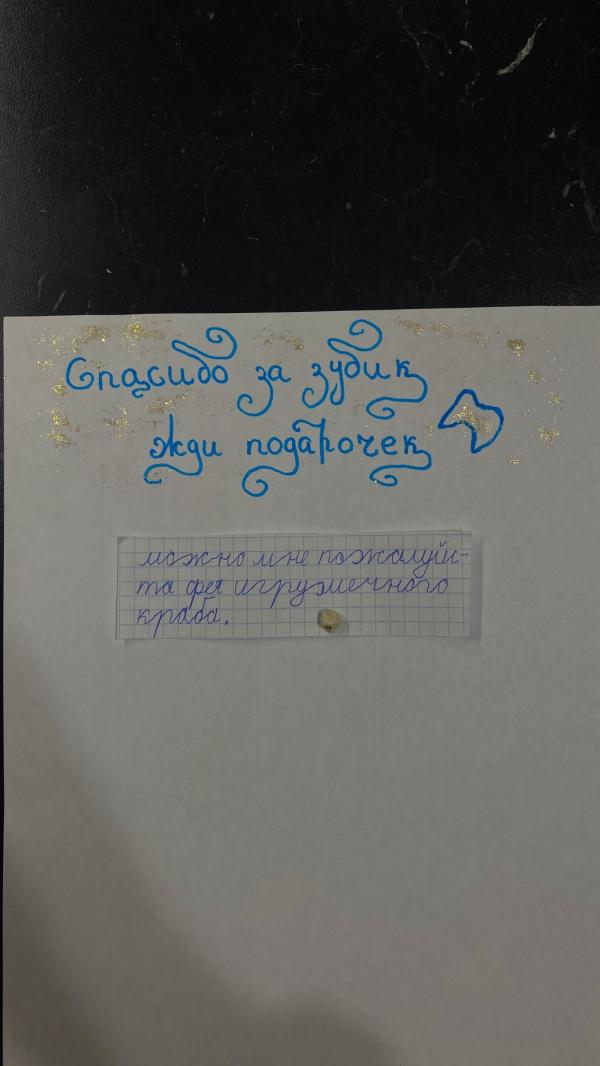 Спасибо за зубик
жди подарочек
можно мне пожалуйс-
та фея игрушечного
краба.